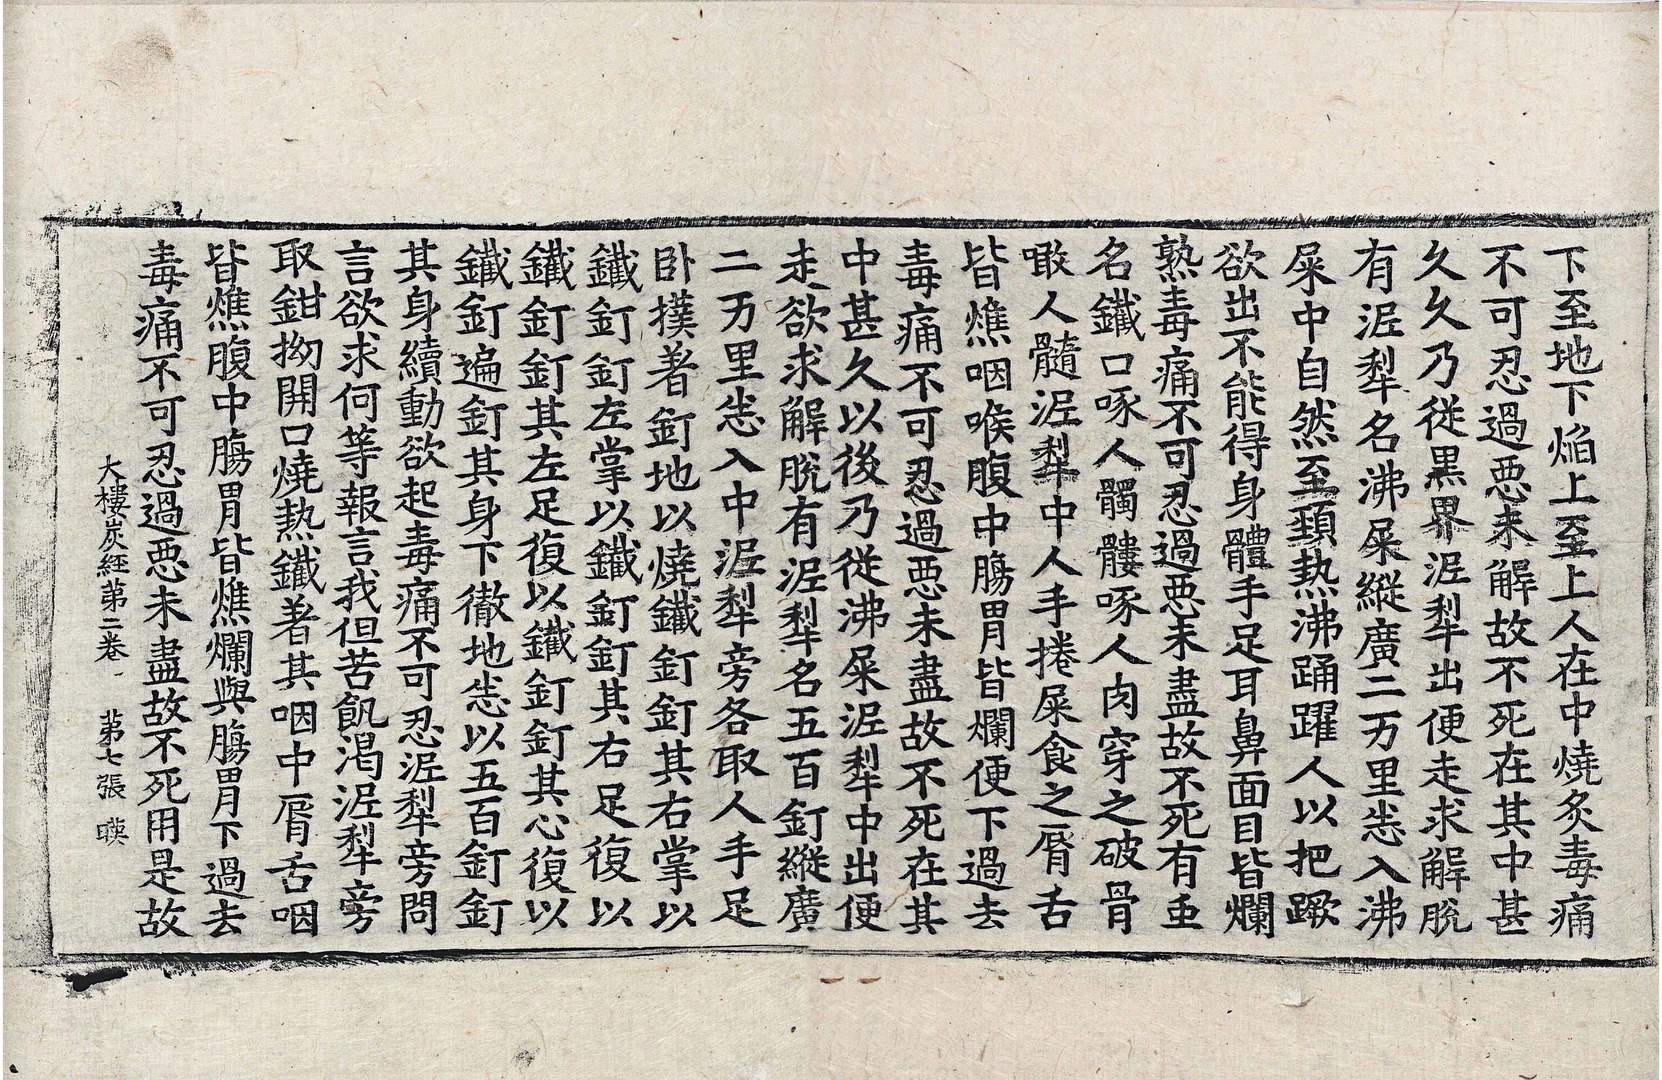 下至地下焰上至上人在中燒炙毒痛
不可忍過惡未解故不死在其中甚
久久乃從黑界泥犁出便走求解脫
有泥犁名沸屎縱廣二万里恙入沸
屎中自然至頸熱沸踊躍人以把蹶
欲出不能得身體手足耳鼻面目皆爛
熟毒痛不可忍過惡未盡故不死有虫
名鐵口啄人髑髏啄人肉穿之破骨
噉人髓泥犁中人手捲屎食之脣舌
皆燋咽喉腹中腸胃皆爛便下過去
毒痛不可忍過惡未盡故不死在其
中甚久以後乃從沸屎泥犁中出便
走欲求解脫有泥犁名五百釘縱廣
二万里恙入中泥犁旁各取人手足
卧撲著釘地以燒鐵釘釘其右掌以
鐵釘釘左掌以鐵釘釘其右足復以
鐵釘釘其左足復以鐵釘釘其心復以
鐵釘遍釘其身下徹地恙以五百釘釘
其身續動欲起毒痛不可忍泥犁旁問
言欲求何等報言我但苦飢渴泥犁旁
取鉗拗開口燒熱鐵著其咽中脣舌咽
皆燋腹中腸胃皆燋爛與腸胃下過去
毒痛不可忍過惡未盡故不死用是故
大樓炭經第二卷 第七張 暎